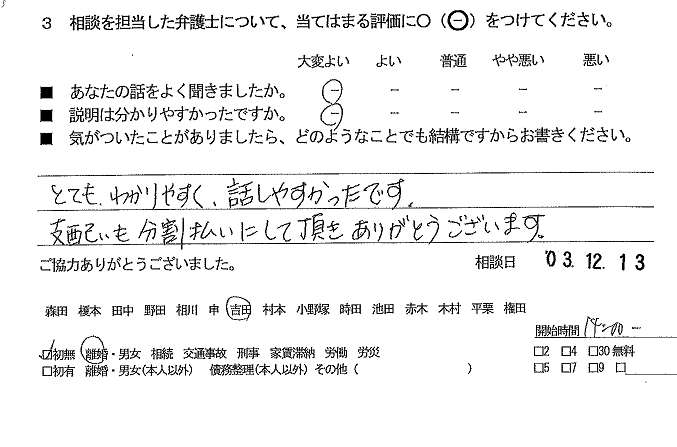 3 相談を担当した弁護士について、当てはまる評価に○（㊀）をつけてください。
大変よい よい 普通 やや悪い 悪い
■ あなたの話をよく聞きましたか。 － － － － －
■ 説明は分かりやすかったですか。 － － － － －
■ 気がついたことがありましたら、どのようなことでも結構ですからお書きください。
とても、わかりやすく、話しやすかったです。
支配いも分割払いにして頂きありがとうございます。
ご協力ありがとうございました。 相談日 '03.12.13
森田 榎本 田中 野田 相川 申 吉田 村本 小野塚 時田 池田 赤木 木村 平栗 権田
開始時間 :00 －
☑初無 離婚・男女 相続 交通事故 刑事 家賃滞納 労働 労災 □2 □4 □30無料
□初有 離婚・男女(本人以外) 債務整理(本人以外) その他（ ） □5 □7 □9 □